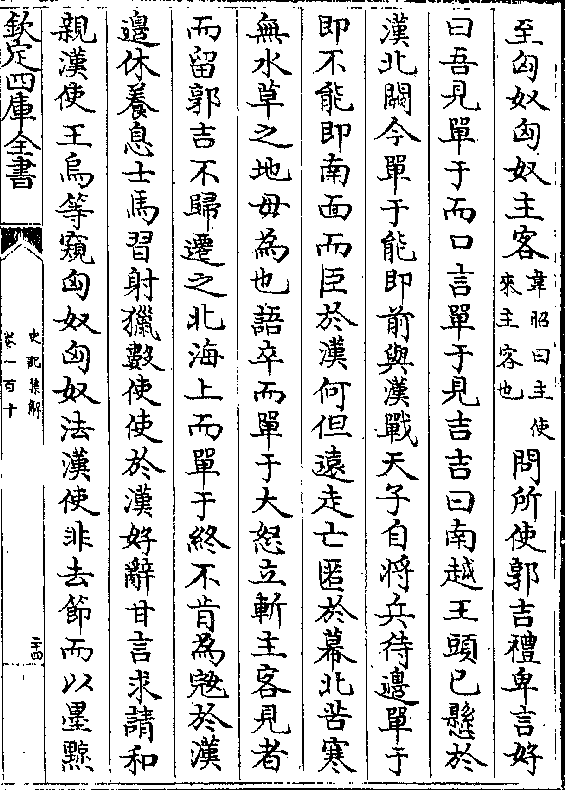 至匈奴匈奴主客韋昭曰主使來主客也問所使郭吉禮卑言好
曰吾見單于而口言單于見吉吉曰南越王頭已懸於
漢北闕今單于能即前與漢戰天子自將兵待邊單于
即不能即南面而臣於漢何但遠走亡匿於幕北苦寒
無水草之地毋為也語卒而單于大怒立斬主客見者
而留郭吉不歸遷之北海上而單于終不肯為寇於漢
邊休養息士馬習射獵數使使於漢好辭甘言求請和
親漢使王烏等窺匈奴匈奴法漢使非去節而以墨黥
欽定四庫全書
史記集解
卷一百十
二十四